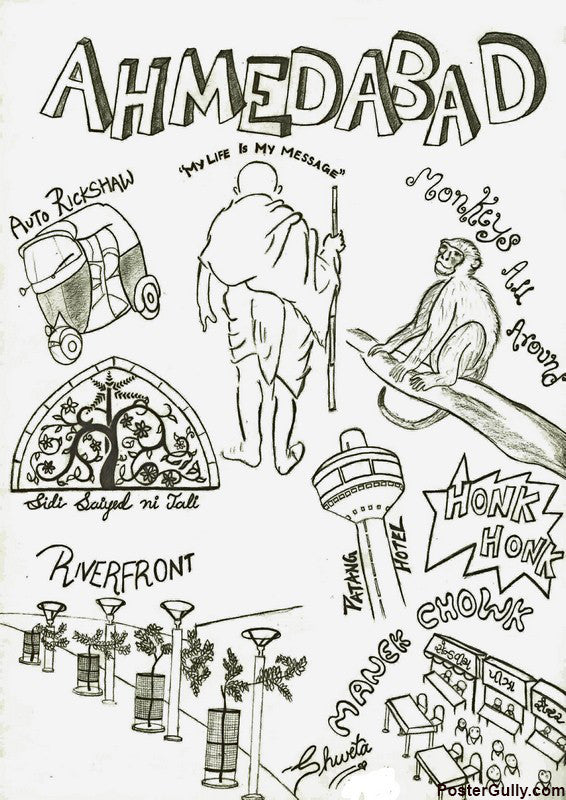 AHMEDABAD
"MY LIFE IS MY MESSAGE"
AUTO RICKSHAW
Monkeys All Around
Sidi Saiyed ni Jali
PATANG HOTEL
HONK
HONK
RIVERFRONT
MANEK CHOWK
સેન્ડવીચ
પીઝા
Shweta
PosterGully.com